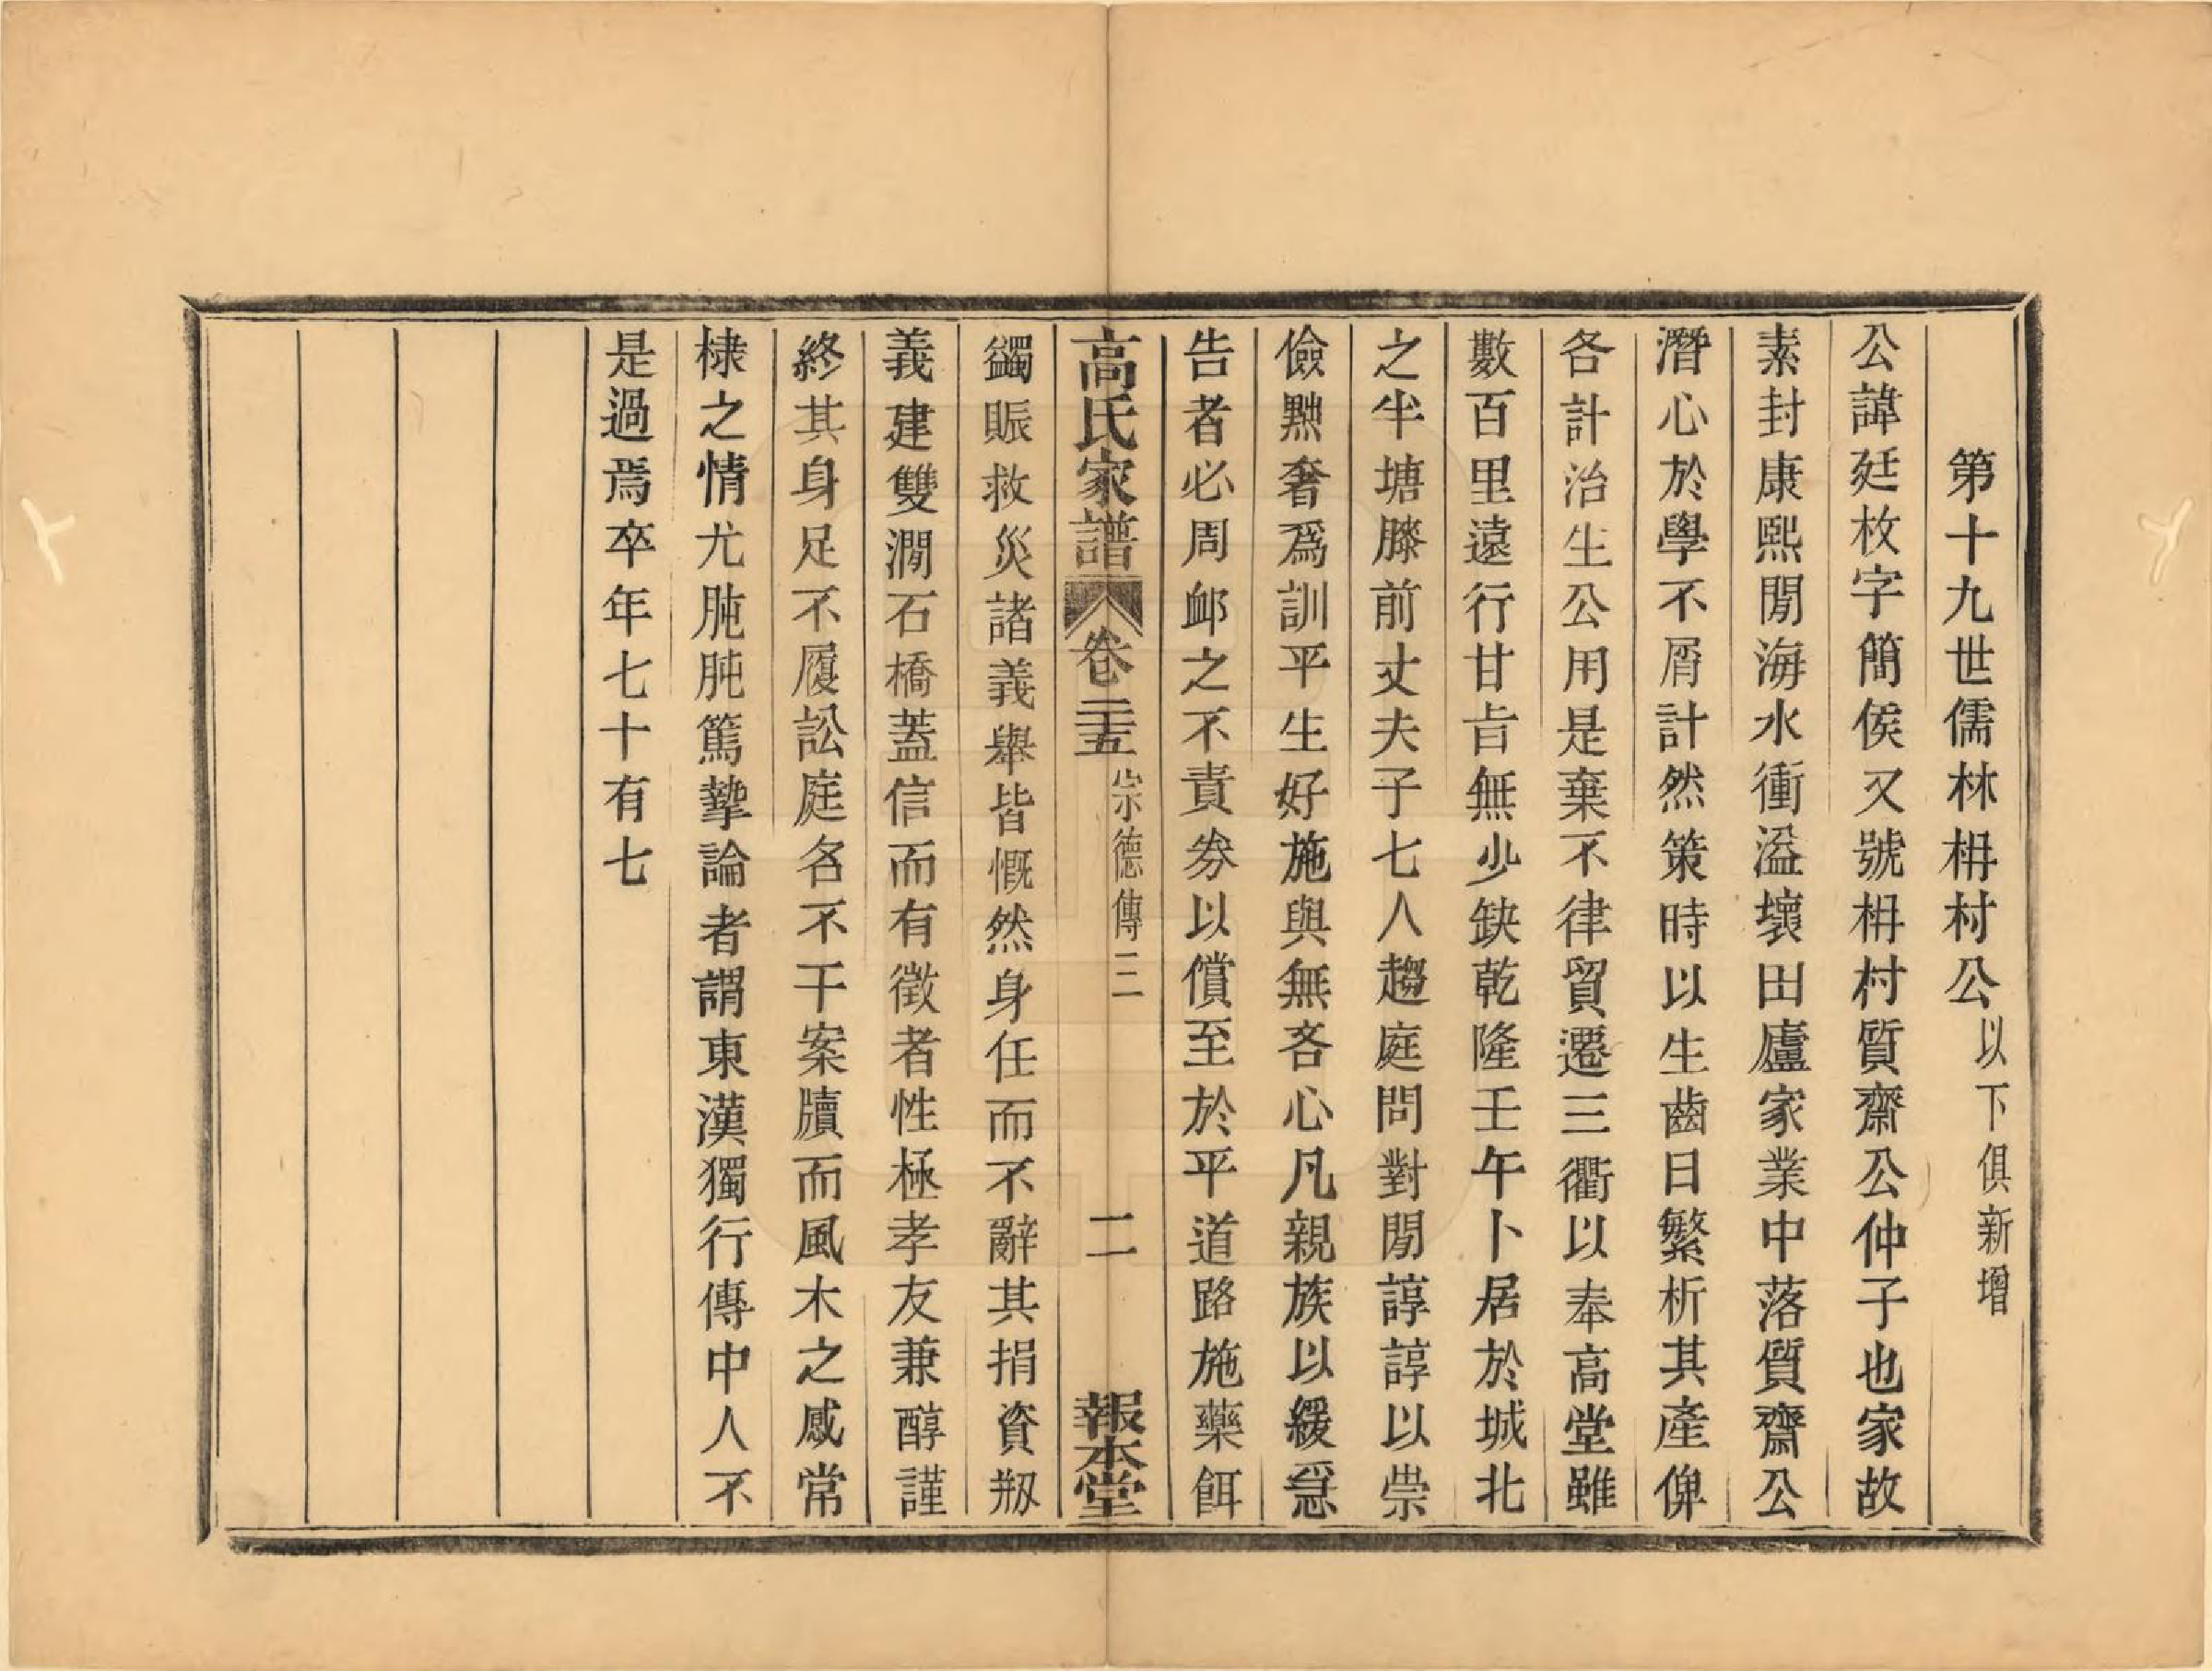 第十九世儒林枏村公以下俱新增
公諱廷枚字簡侯又號枏村質齋公仲子也家故
素封康熙閒海水衝溢壞田廬家業中落質齋公
潛心於學不屑計然策時以生齒日繁析其產俾
各計治生公用是棄不律貿遷三衢以奉高堂雖
數百里遠行甘旨無少缺乾隆壬午卜居於城北
之半塘膝前丈夫子七人趨庭問對閒諄諄以崇
儉黜奢爲訓平生好施與無吝心凡親族以緩急
告者必周卹之不責券以償至於平道路施藥餌
高氏家譜 卷二十五 宗德傳三 二 報本堂
蠲賑救災諸義舉皆慨然身任而不辭其捐資剏
義建雙澗石橋蓋信而有徵者性極孝友兼醇謹
終其身足不履訟庭名不干案牘而風木之感常
棣之情尤肫肫篤摯論者謂東漢獨行傳中人不
是過焉卒年七十有七